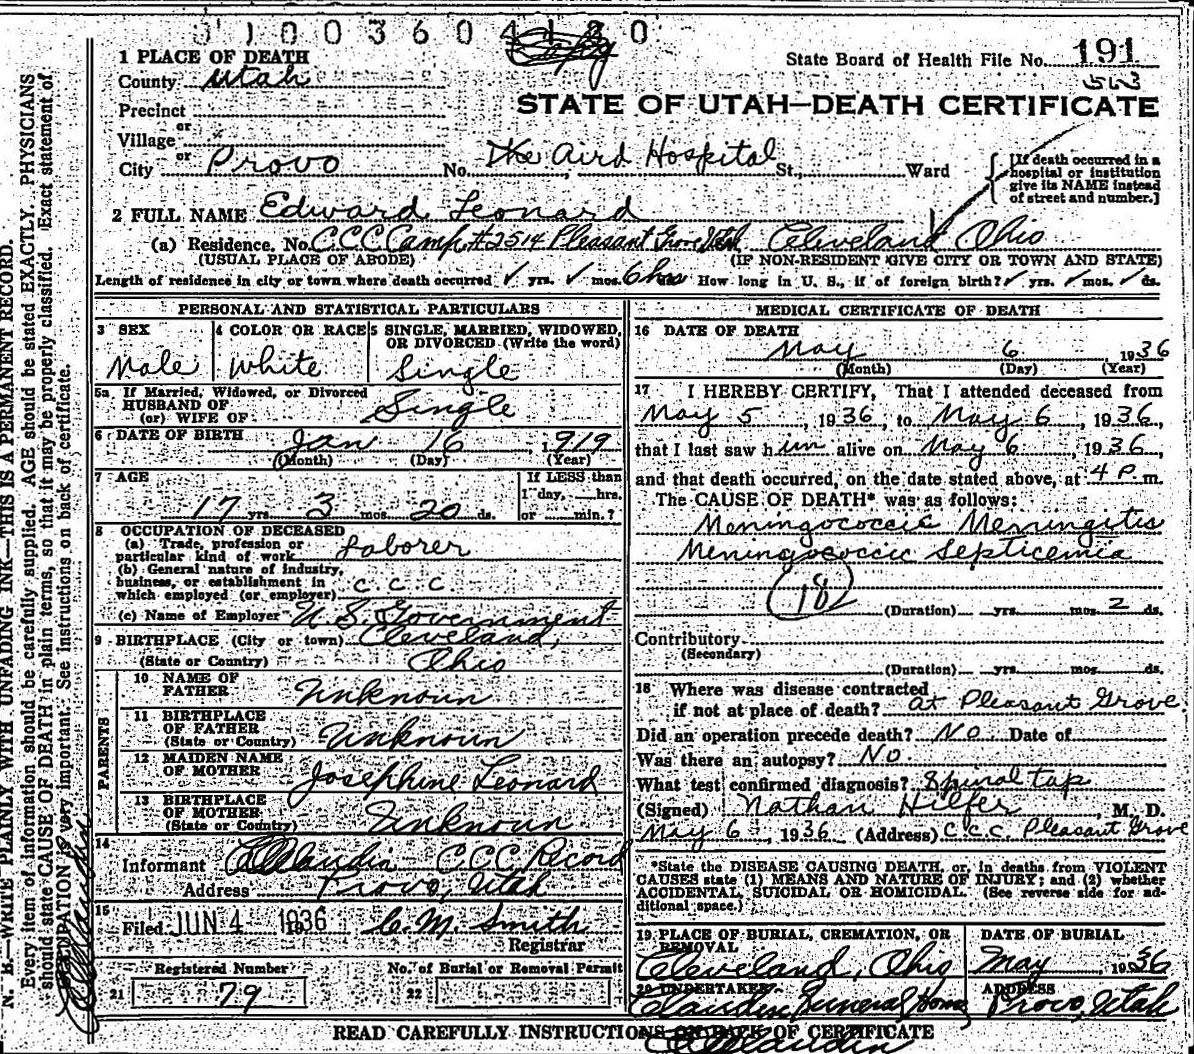 0 1 0 0 3 6 0 4 1 8 0
1 PLACE OF DEATH
County Utah
State Board of Health File No. 191
Precinct
STATE OF UTAH—DEATH CERTIFICATE
or
Village
or
City Provo No. The Aird Hospital St., Ward
[If death occurred in a hospital or institution give its NAME instead of street and number.]
2 FULL NAME Edward Leonard
(a) Residence, No. C.C.C. Camp #2514 Pleasant Grove Utah Cleveland Ohio
(USUAL PLACE OF ABODE) (IF NON-RESIDENT GIVE CITY OR TOWN AND STATE)
Length of residence in city or town where death occurred ✓ yrs. ✓ mos. 6 hrs ds. How long in U. S., if of foreign birth? ✓ yrs. ✓ mos. ✓ ds.
PERSONAL AND STATISTICAL PARTICULARS
3 SEX
Male
4 COLOR OR RACE
White
5 SINGLE, MARRIED, WIDOWED, OR DIVORCED (Write the word)
Single
5a If Married, Widowed, or Divorced
HUSBAND OF
(or) WIFE OF Single
6 DATE OF BIRTH Jan 16, 1919
(Month) (Day) (Year)
7 AGE
17 yrs. 3 mos. 20 ds.
If LESS than
1 day, hrs.
or min.?
8 OCCUPATION OF DECEASED
(a) Trade, profession or
particular kind of work Laborer
(b) General nature of industry,
business, or establishment in
which employed (or employer) C C C
(c) Name of Employer U.S. Government
9 BIRTHPLACE (City or town) Cleveland,
(State or Country) Ohio
PARENTS
10 NAME OF
FATHER Unknown
11 BIRTHPLACE
OF FATHER
(State or Country) Unknown
12 MAIDEN NAME
OF MOTHER Josephine Leonard
13 BIRTHPLACE
OF MOTHER
(State or Country) Unknown
14
Informant CCC Record
Address Provo, Utah
15 Filed JUN 4 1936 C. M. Smith
Registrar
Registered Number
21 79
No. of Burial or Removal Permit
22
MEDICAL CERTIFICATE OF DEATH
16 DATE OF DEATH
May 6, 1936
(Month) (Day) (Year)
17 I HEREBY CERTIFY, That I attended deceased from
May 5, 1936, to May 6, 1936,
that I last saw him alive on May 6, 1936
and that death occurred, on the date stated above, at 4 P. m.
The CAUSE OF DEATH* was as follows:
Meningococcic Meningitis
Meningococcic Septicemia
18
(Duration) yrs. mos. 2 ds.
Contributory
(Secondary)
(Duration) yrs. mos. ds.
18 Where was disease contracted
if not at place of death? at Pleasant Grove
Did an operation precede death? No. Date of
Was there an autopsy? No.
What test confirmed diagnosis? Spinal tap
(Signed) Nathan Hilfer, M. D.
May 6, 1936 (Address) C.C.C. Pleasant Grove
*State the DISEASE CAUSING DEATH, or, in deaths from VIOLENT
CAUSES state (1) MEANS AND NATURE OF INJURY; and (2) whether
ACCIDENTAL, SUICIDAL OR HOMICIDAL. (See reverse side for ad-
ditional space.)
19 PLACE OF BURIAL, CREMATION, OR
REMOVAL
Cleveland, Ohio
DATE OF BURIAL
May, 1936
20 UNDERTAKER
Claudin Funeral Home
ADDRESS
Provo, Utah
READ CAREFULLY INSTRUCTIONS ON BACK OF CERTIFICATE
N. B.—WRITE PLAINLY WITH UNFADING INK—THIS IS A PERMANENT RECORD.
Every item of information should be carefully supplied. AGE should be stated EXACTLY. PHYSICIANS
should state CAUSE OF DEATH in plain terms, so that it may be properly classified. Exact statement of
OCCUPATION is very important. See instructions on back of certificate.